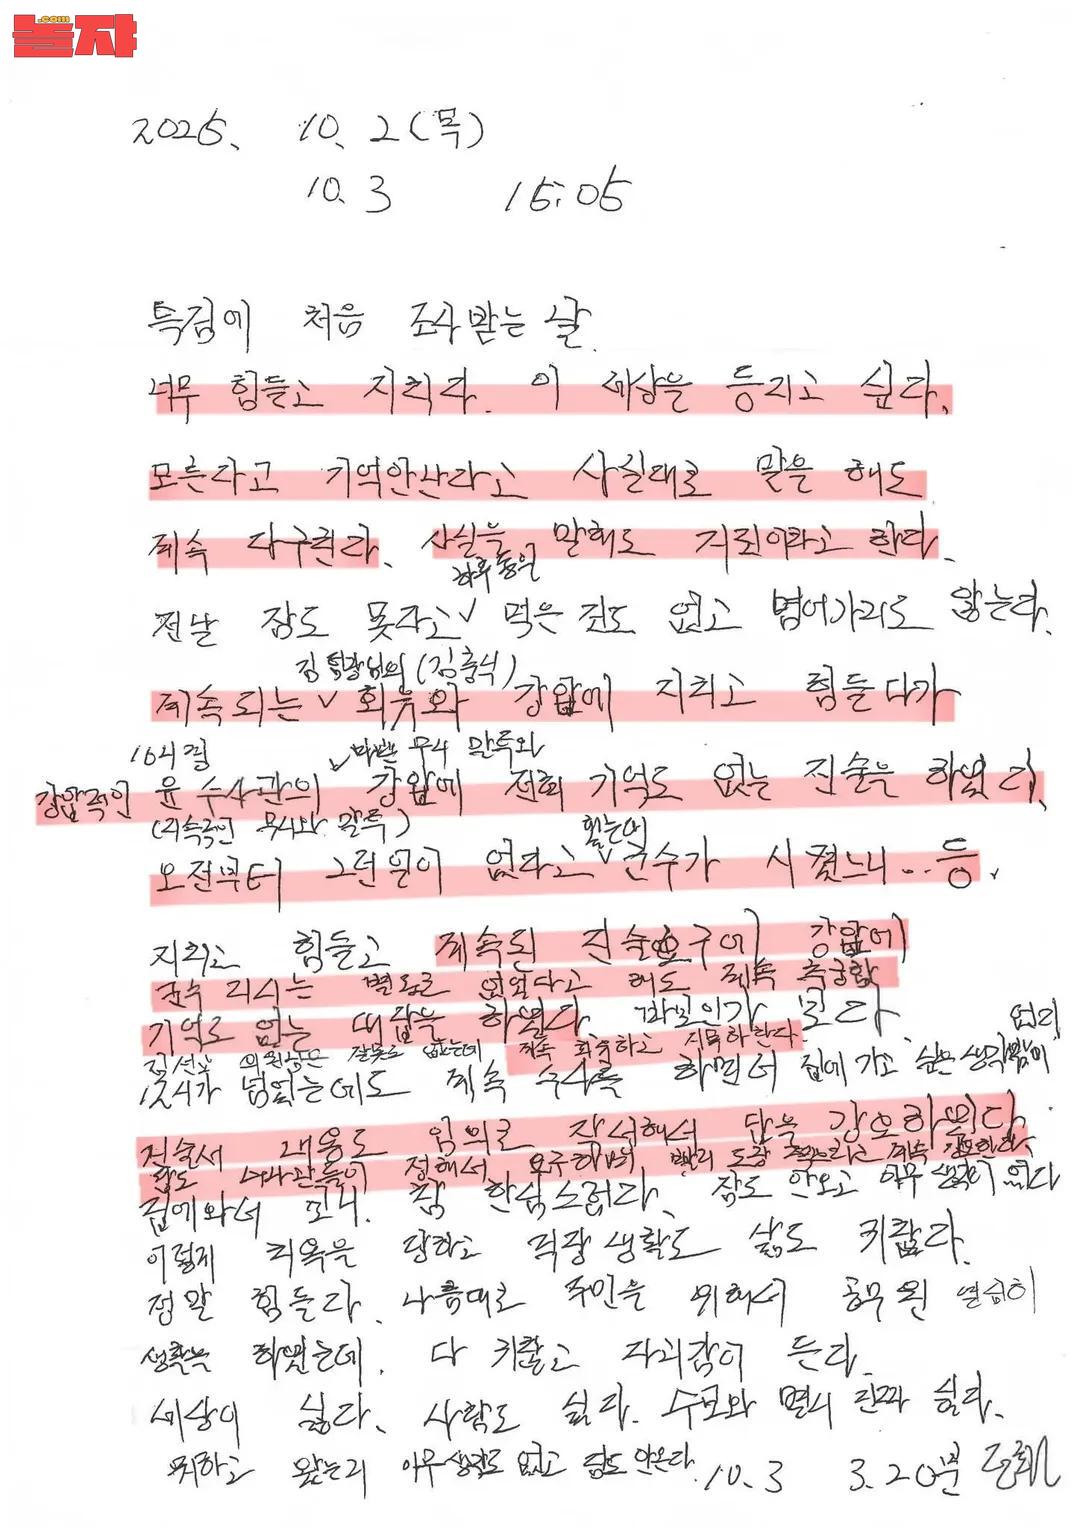 놀쟈.com
2025. 10. 2(목)
10. 3 15:05
특검에 처음 조사받는 날.
너무 힘들고 지치다. 이 세상을 등지고 싶다.
모른다고 기억안난다고 사실대로 말을 해도
계속 다구친다. 사실을 말해도 거짓이라고 한다.
하루종일
전날 잠도 못자고 ∨ 먹은 것도 없고 넘어가지도 않는다.
김 팀장님의 (김충식)
계속되는 ∨ 회유와 강압에 지치고 힘들다가
∨ 반말 무시 말투와
강압적인 윤 수사관의 강압에 전혀 기억도 없는 진술을 하였다.
(지속적인 무시와 말투)
오전부터 그런일이 없다고 ∨ 군수가 시켰느니... 등.
지치고 힘들고 계속된 진술요구에 강압에
군수 지시는 별도로 없었다고 해도 계속 추궁함
기억도 없는 대답을 하였다. 바보인가 보다.
김선교 의원님은 잘못도 없는데 계속 회유하고 지목하란다.
12시가 넘었는데도 계속 수사를 하면서 집에 가고 싶은 생각밖이 없다
진술서 내용도 임의로 작성해서 답을 강요하였다.
답도 수사관들이 정해서 요구하며 빨리 도장 찍으라고 계속 강요한다.
집에와서 보니. 참 한심스럽다. 잠도 안오고 아무 생각이 없다
이렇게 치욕을 당하고 직장생활도 삶도 귀찮다.
정말 힘들다. 나름대로 주민을 위해서 공무원 열심히
생활을 하였는데. 다 귀찮고 자괴감이 든다.
세상이 싫다. 사람도 싫다. 수모와 멸시 진짜 싫다.
왔는지 아무생각도 없고 잠도 안온다. 10. 3 3.20분